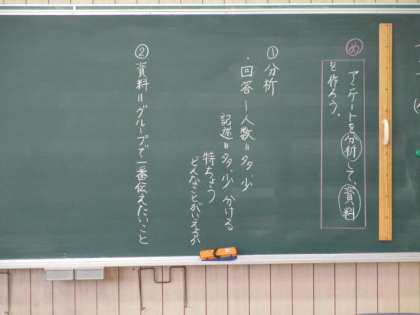 め
アンケートを分析して、資料
を作ろう。
① 分析
・回答ー人数=多、少
記述=多、少 かける
特ちょう
どんなことがいえるか
② 資料=グループで一番伝えたいこと